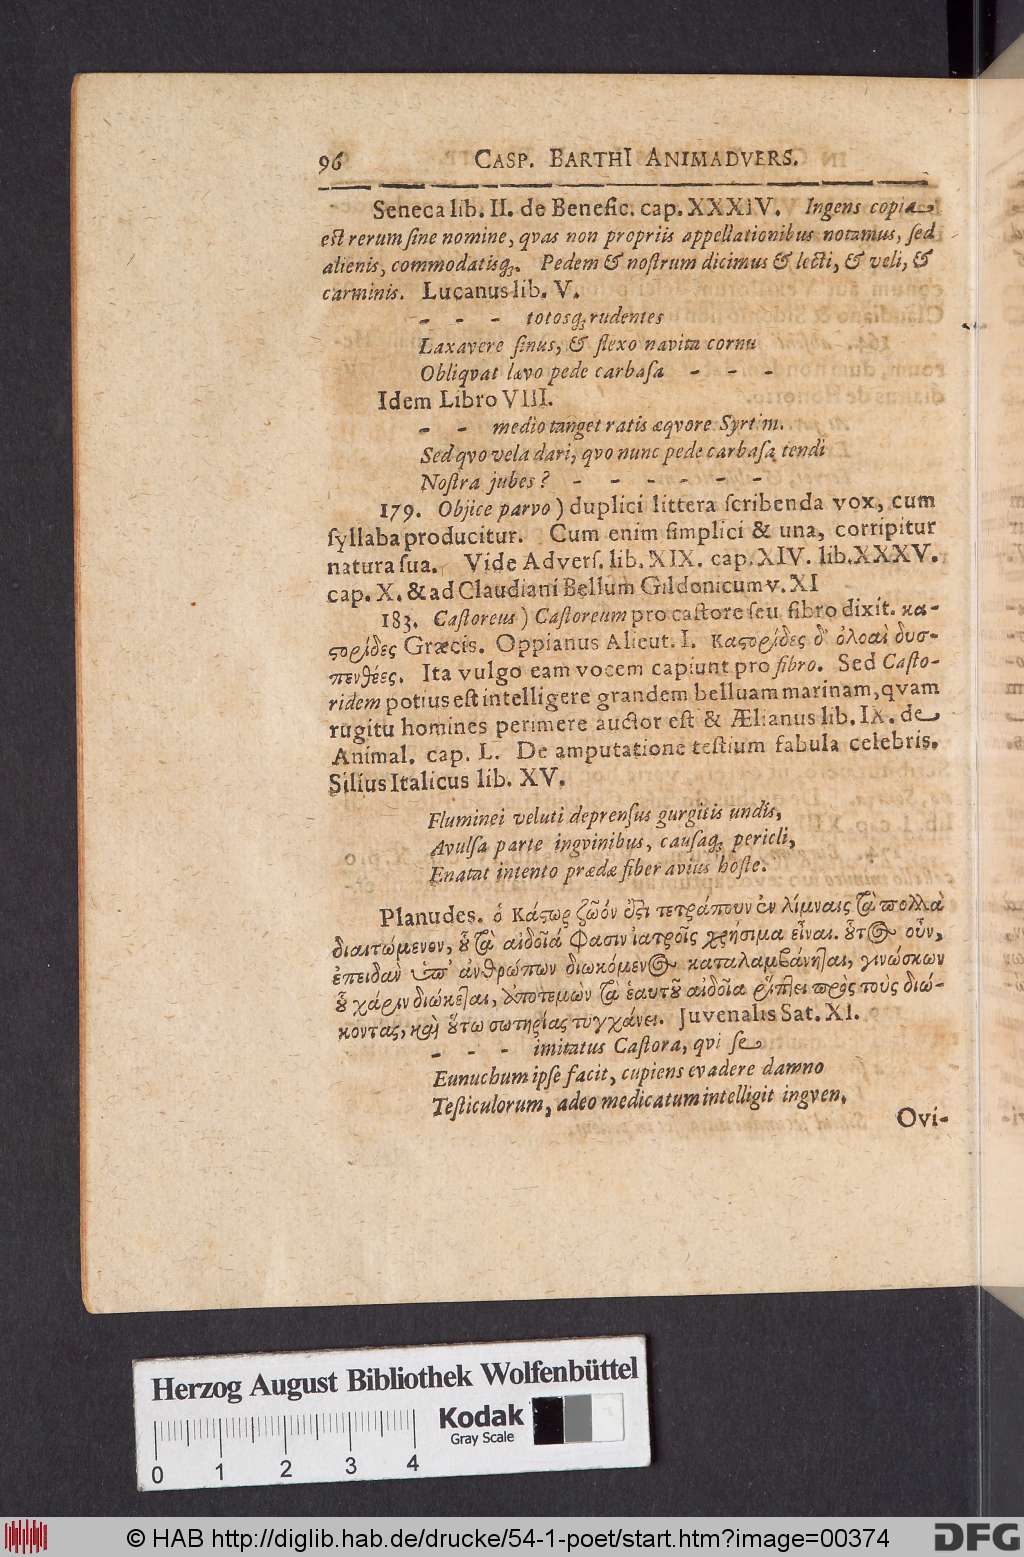 96 CASP. BARTHI ANIMADVERS.
Seneca lib. II. de Benefic. cap. XXXIV. Ingens copia
est rerum sine nomine, qvas non propriis appellationibus notamus, sed
alienis, commodatisq;. Pedem & nostrum dicimus & lecti, & veli, &
carminis. Lucanus lib. V.
- - - totosq; rudentes
Laxavere sinus, & flexo navita cornu
Obliqvat lævo pede carbasa - - -
Idem Libro VIII.
- - medio tanget ratis æqvore Syrtim.
Sed qvo vela dari, qvo nunc pede carbasa tendi
Nostra jubes? - - - - - -
179. Objice parvo) duplici littera scribenda vox, cum
syllaba producitur. Cum enim simplici & una, corripitur
natura sua. Vide Advers. lib. XIX. cap. XIV. lib. XXXV.
cap. X. & ad Claudiani Bellum Gildonicum v. XI
183. Castoreus) Castoreum pro castore seu fibro dixit. κα-
ϛορίδες Græcis. Oppianus Alieut. I. Καϛορίδες δ' ὀλοαὶ δυσ-
πενθέες. Ita vulgo eam vocem capiunt pro fibro. Sed Casto-
ridem potius est intelligere grandem belluam marinam, qvam
rugitu homines perimere auctor est & Ælianus lib. IX. de
Animal. cap. L. De amputatione testium fabula celebris.
Silius Italicus lib. XV.
Fluminei veluti deprensus gurgitis undis,
Avulsa parte ingvinibus, causaq; pericli,
Enatat intento prædæ fiber avius hoste.
Planudes. ὁ Κάϛωρ ζῶόν ἐϛι τετράπουν ἐν λίμναις τὰ πολλὰ
διαιτώμενον, οὗ τὰ αἰδοῖά φασιν ἰατροῖς χρήσιμα εἶναι. οὗτος οὖν,
ἐπειδὰν ὑπ' ἀνθρώπων διωκόμενος καταλαμβάνηται, γινώσκων
οὗ χάριν διώκεται, ἀποτεμὼν τὰ ἑαυτοῦ αἰδοῖα ῥίπτει πρὸς τοὺς διώ-
κοντας, καὶ οὕτω σωτηρίας τυγχάνει. Juvenalis Sat. XI.
- - - imitatus Castora, qvi se
Eunuchum ipse facit, cupiens evadere damno
Testiculorum, adeo medicatum intelligit ingven.
Ovi-
Herzog August Bibliothek Wolfenbüttel
Kodak
Gray Scale
0 1 2 3 4
© HAB http://diglib.hab.de/drucke/54-1-poet/start.htm?image=00374
DFG